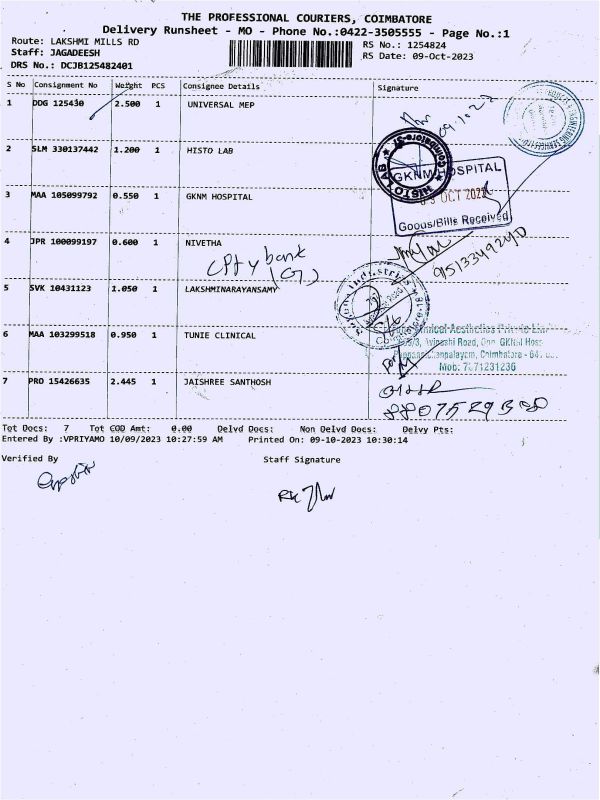 THE PROFESSIONAL COURIERS, COIMBATORE
Delivery Runsheet - MO - Phone No.:0422-3505555 - Page No.:1
Route: LAKSHMI MILLS RD
RS No.: 1254824
Staff: JAGADEESH
RS Date: 09-Oct-2023
DRS No.: DCJB125482401
S No Consignment No Weight PCS Consignee Details Signature
1 DDG 125430 2.500 1 UNIVERSAL MEP
09.10.23
2 SLM 330137442 1.200 1 HISTO LAB
HISTO LAB
GKNM HOSPITAL
3 MAA 105099792 0.550 1 GKNM HOSPITAL
OCT 2023
Goods/Bills Received
4 JPR 100099197 0.600 1 NIVETHA
5 SVK 10431123 1.050 1 LAKSHMINARAYANSAMY
6 MAA 103299518 0.950 1 TUNIE CLINICAL
Avinashi Road, Opp. GKNM Hosp
Coimbatore - 64
Mob: 7871231236
7 PRO 15426635 2.445 1 JAISHREE SANTHOSH
Tot Docs: 7 Tot COD Amt: 0.00 Delvd Docs: Non Delvd Docs: Delvy Pts:
Entered By :VPRIYAMO 10/09/2023 10:27:59 AM Printed On: 09-10-2023 10:30:14
Verified By Staff Signature